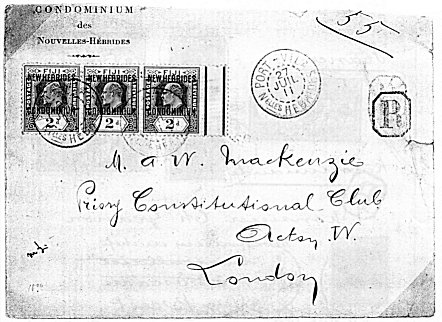 CONDOMINIUM
des
NOUVELLES-HÉBRIDES
55
FIJI FIJI FIJI
NEW HEBRIDES NEW HEBRIDES NEW HEBRIDES
CONDOMINIUM CONDOMINIUM CONDOMINIUM
2d 2d 2d
PORT-VILA
27
JUIL
11
Nlles HEBRIDES
R
M. A W. Mackenzie
Priory Constitutional Club
Acton W.
London